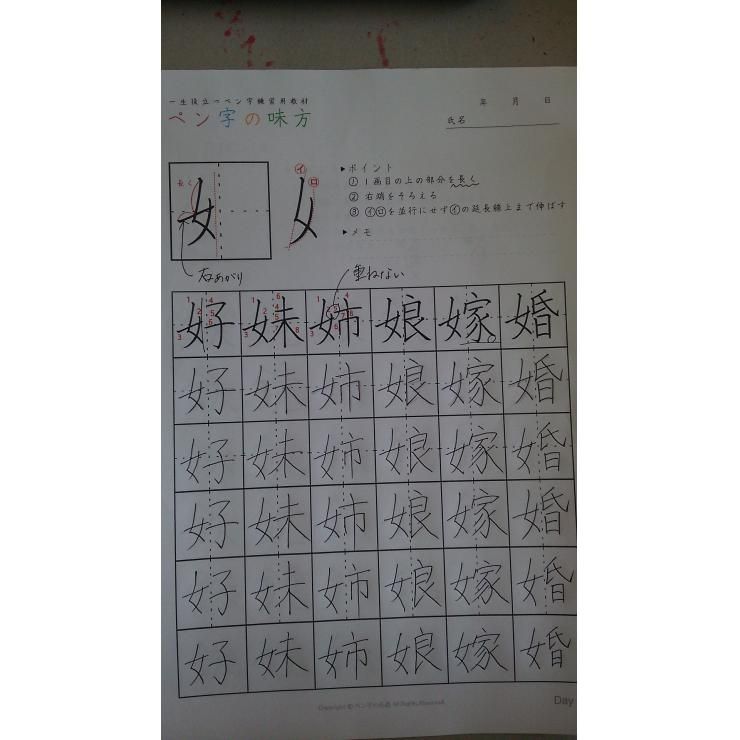 一生役立つペン字練習用教材
ペン字の味方
年 月 日
氏名
▶ポイント
① 1画目の上の部分を長く
② 右端をそろえる
③ ㋑㋺を並行にせず㋑の延長線上まで伸ばす
▶メモ
長く
女
㋑
㋺
右あがり
重ねない
好 妹 姉 娘 嫁 婚
好 妹 姉 娘 嫁 婚
好 妹 姉 娘 嫁 婚
好 妹 姉 娘 嫁 婚
好 妹 姉 娘 嫁 婚
好 妹 姉 娘 嫁 婚
Copyright © ペン字の味方 All Rights Reserved.
Day